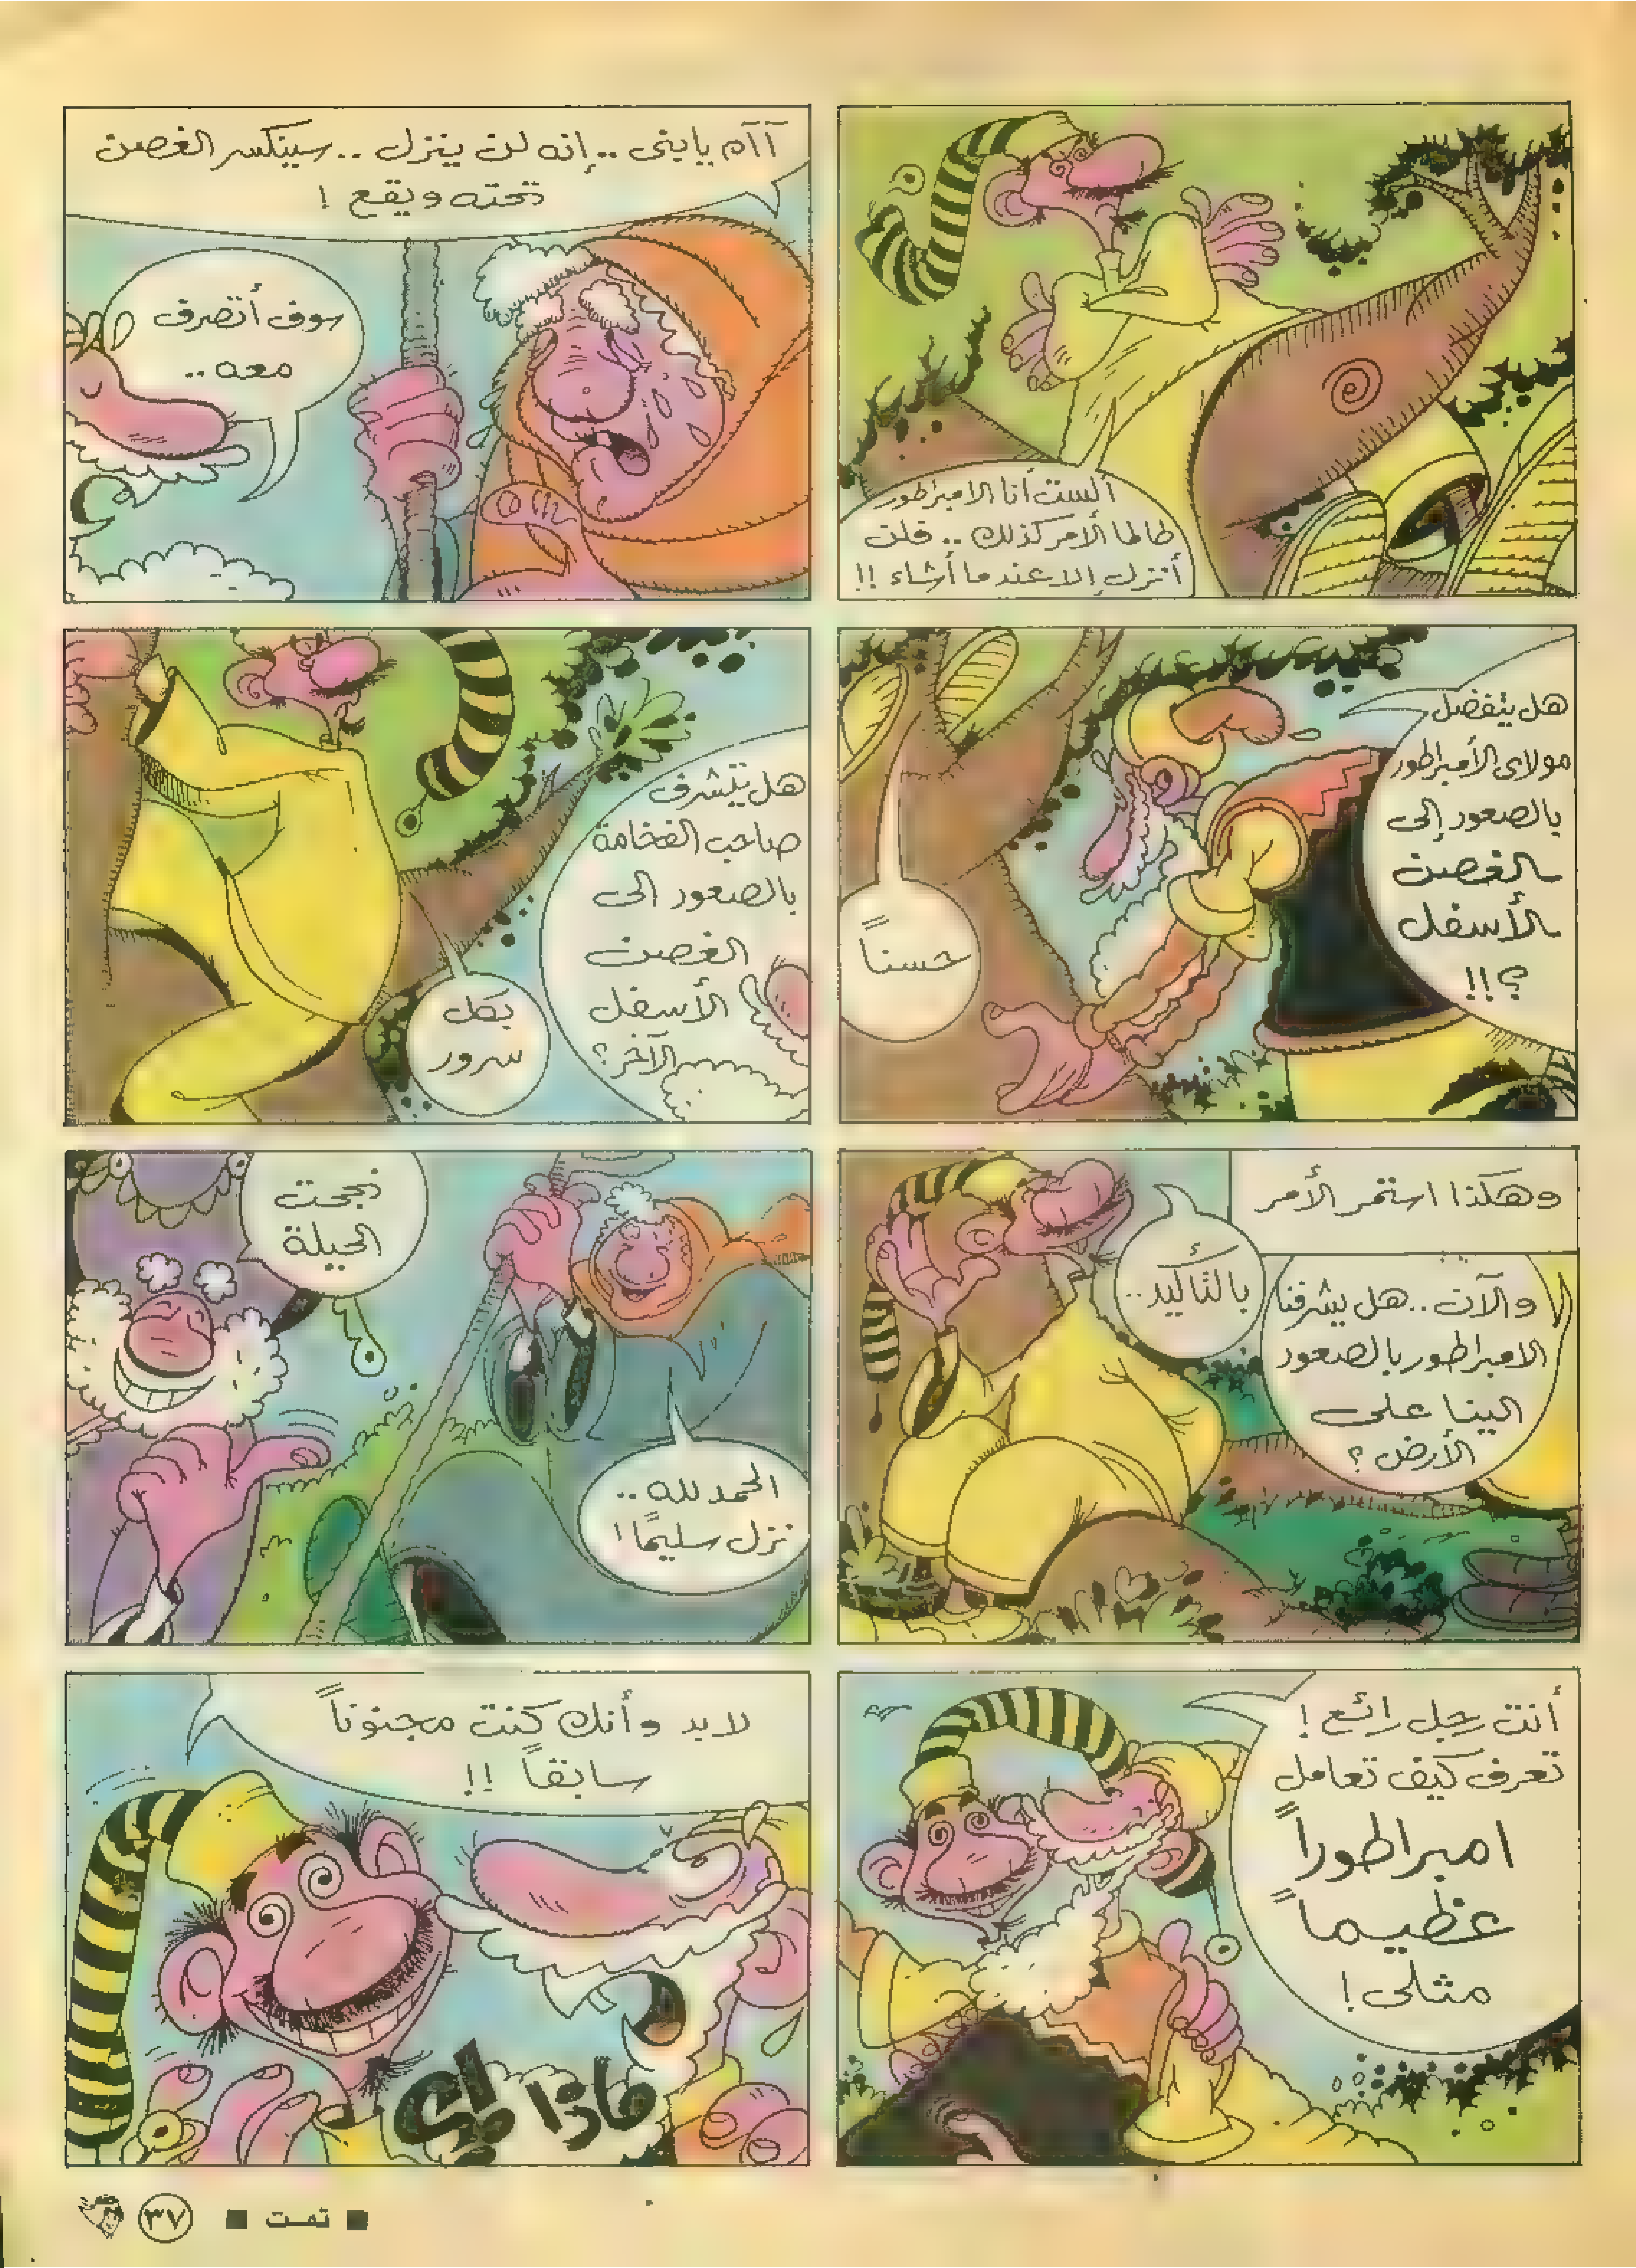 ألست أنا الامبراطور
طالما الأمر كذلك .. فلن
أنزل إلا عندما أشاء !!
آآه يا بنى .. إنه لن ينزل .. سينكسر الغصن
تحته ويقع !
سوف أتصرف
معه ..
هل يتفضل
مولاى الأمبراطور
بالصعود إلى
الغصن
الأسفل
؟!!
حسناً
هل يتشرف
صاحب الفخامة
بالصعود الى
الغصن
الأسفل
الآخر؟
بكل
سرور
وهكذا استمر الأمر
والآن .. هل يشرفنا
الامبراطور بالصعود
الينا على
الأرض ؟
بالتأكيد ..
نجحت
الحيلة
الحمد لله ..
نزل سليمًا !
أنت رجل رائع !
تعرف كيف تعامل
امبراطوراً
عظيماً
مثلى !
لابد وأنك كنت مجنوناً
سابقاً !!
ماذا
تمت
٣٧